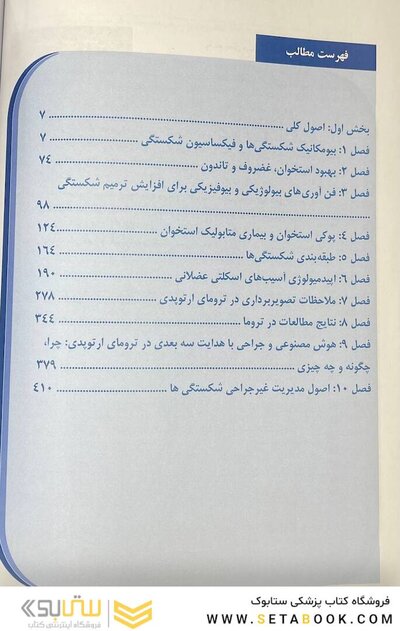 فهرست مطالب
بخش اول: اصول کلی ........ ۷
فصل ۱: بیومکانیک شکستگی‌ها و فیکساسیون شکستگی ........ ۷
فصل ۲: بهبود استخوان، غضروف و تاندون ........ ۷۴
فصل ۳: فن آوری‌های بیولوژیکی و بیوفیزیکی برای افزایش ترمیم شکستگی
........ ۹۸
فصل ۴: پوکی استخوان و بیماری متابولیک استخوان ........ ۱۲۴
فصل ۵: طبقه‌بندی شکستگی‌ها ........ ۱۶۴
فصل ۶: اپیدمیولوژی آسیب‌های اسکلتی عضلانی ........ ۱۹۰
فصل ۷: ملاحظات تصویربرداری در ترومای ارتوپدی ........ ۲۷۸
فصل ۸: نتایج مطالعات در تروما ........ ۳۴۴
فصل ۹: هوش مصنوعی و جراحی با هدایت سه بعدی در ترومای ارتوپدی: چرا،
چگونه و چه چیزی ........ ۳۷۹
فصل ۱۰: اصول مدیریت غیرجراحی شکستگی ها ........ ۴۱۰
فروشگاه کتاب پزشکی ستابوک
WWW.SETABOOK.COM
ستابوک
فروشگاه اینترنتی کتاب